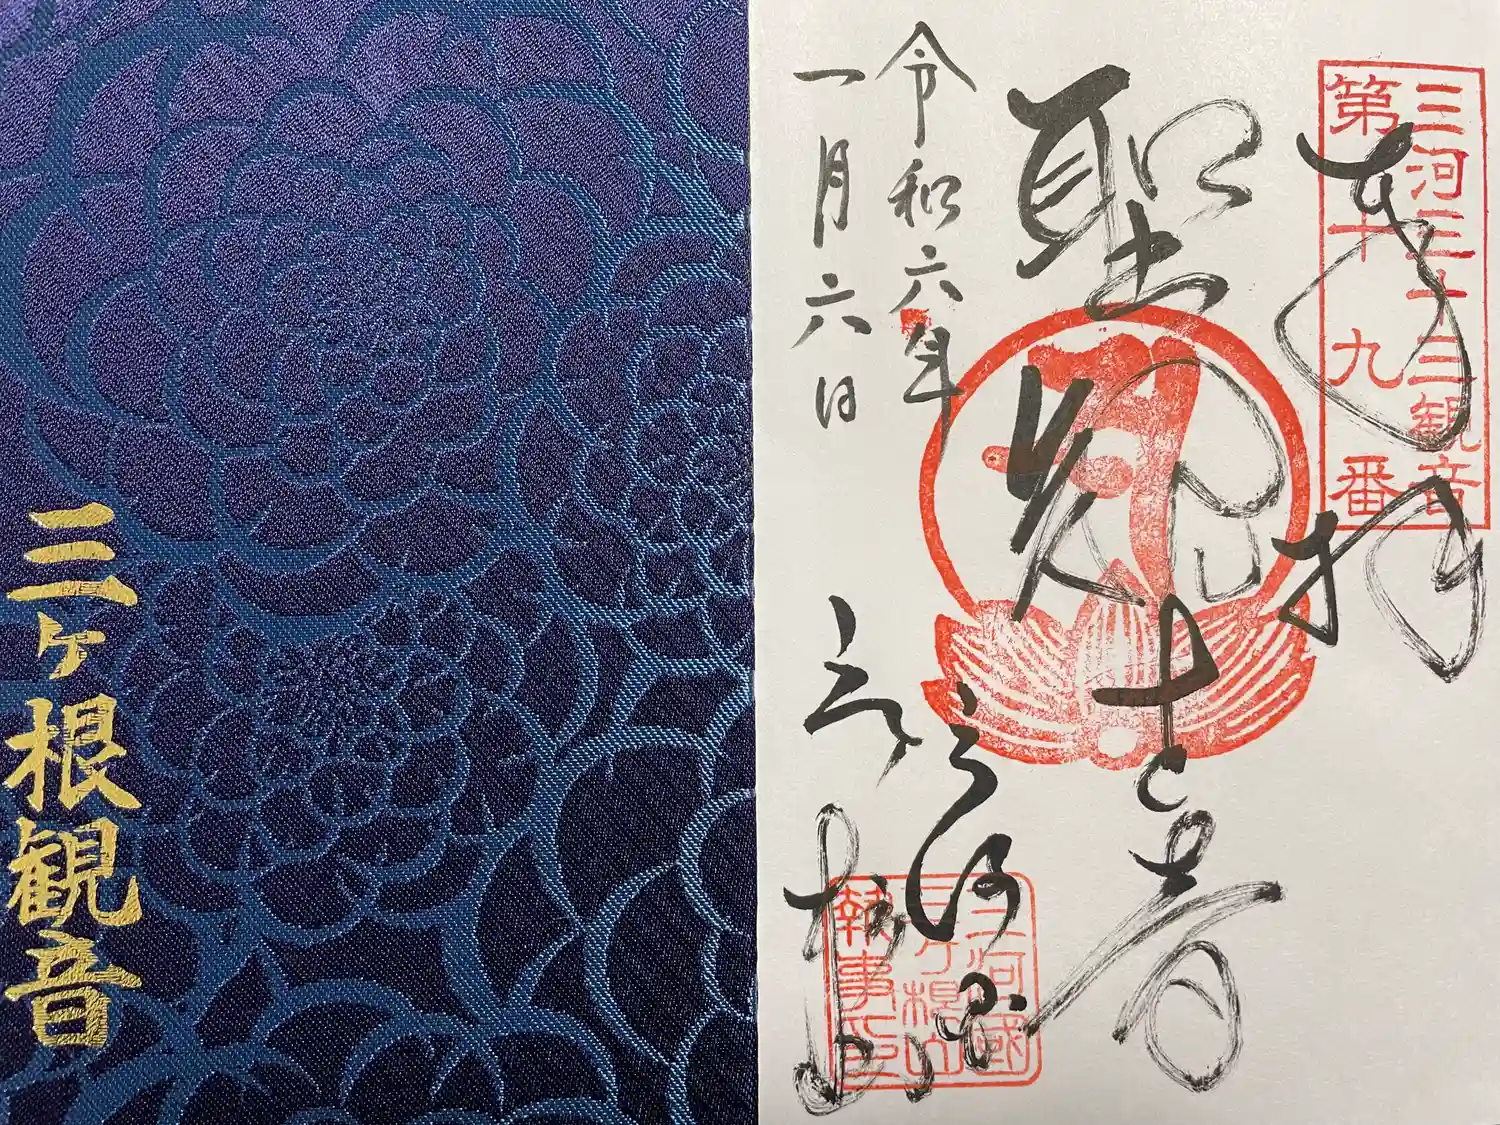 三ヶ根観音
三河三十三観音
第十九番
奉拝
聖観世音
令和六年
一月六日
三河国
三ヶ根山
三河國
三ヶ根山
執事印